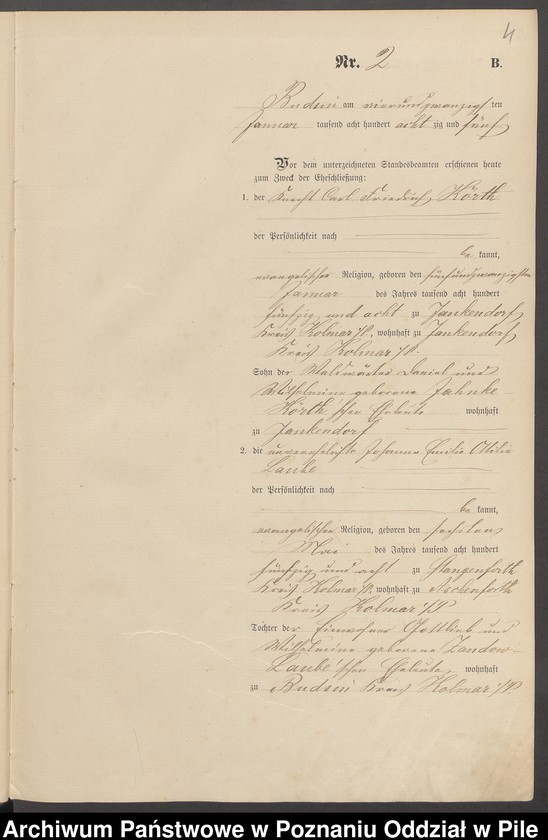 4
Nr. 2 B.
Budsin am vierundzwanzigsten
Januar tausend acht hundert achtzig und fünf
Vor dem unterzeichneten Standesbeamten erschienen heute
zum Zweck der Eheschließung:
1. der Knecht Carl Friedrich Körth
der Persönlichkeit nach
be kannt,
evangelischer Religion, geboren den fünfundzwanzigsten
Januar des Jahres tausend acht hundert
fünfzig und acht zu Jankendorf
Kreis Kolmar i/P. wohnhaft zu Jankendorf
Kreis Kolmar i/P.
Sohn der Waldwärter Daniel und
Wilhelmine geborene Jahnke
Körth'schen Eheleute wohnhaft
zu Jankendorf
2. die unverehelichte Johanna Emilie Ottilie
Laube
der Persönlichkeit nach
be kannt,
evangelischer Religion, geboren den sechsten
Mai des Jahres tausend acht hundert
fünfzig und acht zu Stangenforth
Kreis Kolmar i/P. wohnhaft zu
Kreis Kolmar i/P
Tochter der Einwohner Gottlieb und
Wilhelmine geborene Zandow
Laube'schen Eheleute wohnhaft
zu Budsin Kreis Kolmar i/P.
Archiwum Państwowe w Poznaniu Oddział w Pile